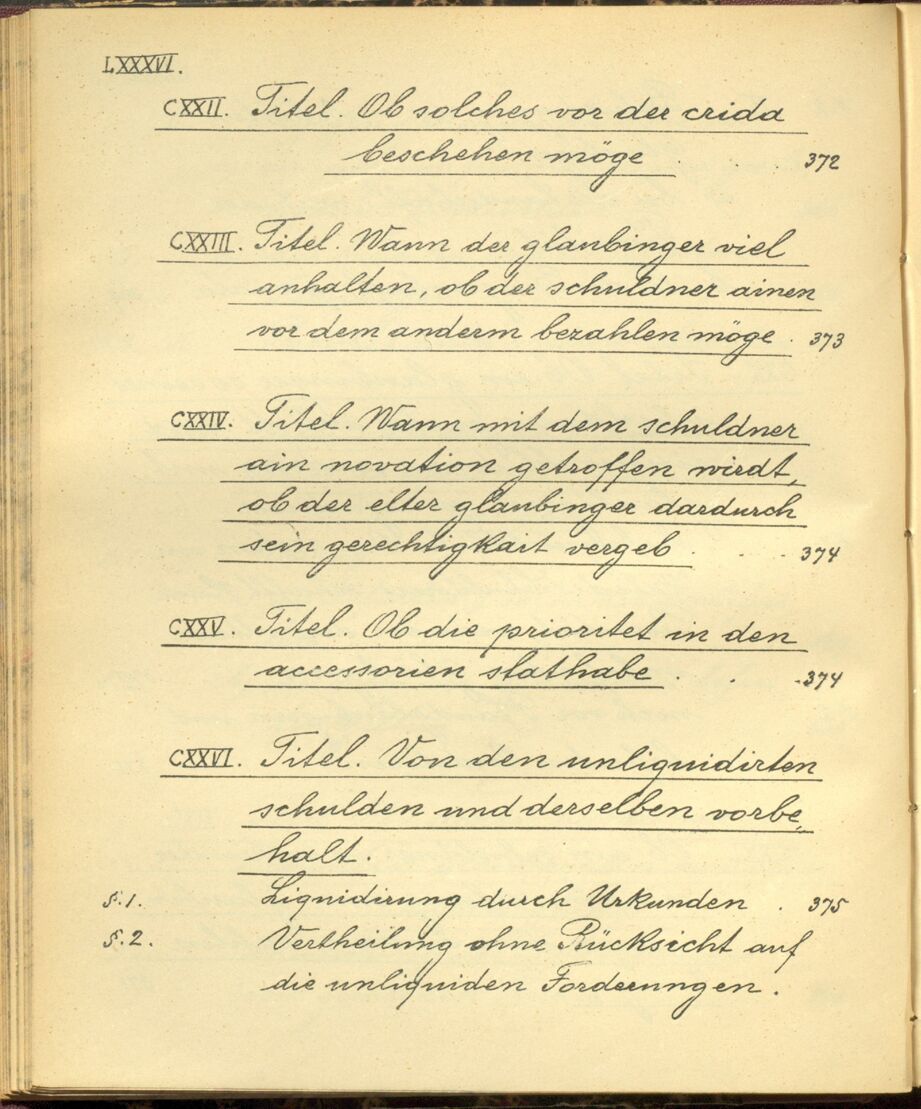 LXXXVI.
CXXII. Titel. Ob solches vor der crida
beschehen möge . . . 372
CXXIII. Titel. Wann der glaubinger viel
anhalten, ob der schuldner ainen
vor dem anderm bezahlen möge . 373
CXXIV. Titel. Wann mit dem schuldner
ain novation getroffen wirdt,
ob der elter glaubinger dardurch
sein gerechtigkait vergeb . . . . 374
CXXV. Titel. Ob die prioritet in den
accessorien stathabe . . . 374
CXXVI. Titel. Von den unliquidirten
schulden und derselben vorbe„
halt.
§. 1. Liquidirung durch Urkunden . 375
§. 2. Vertheilung ohne Rücksicht auf
die unliquiden Forderungen .